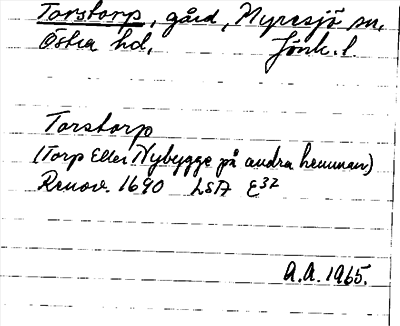 Torstorp, gård, Myresjö sn,
Östra hd, Jönk. l.
Torstorp
(Torp Eller Nybygge på andra hemman)
Renov. 1690 LSA E³²
A.A. 1965.